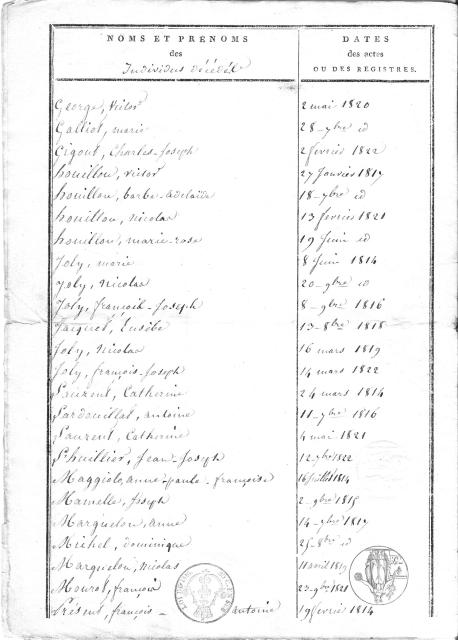 NOMS ET PRÉNOMS
des
Individus décédés
DATES
des actes
OU DES REGISTRES.
George, victor 2 mai 1820
Galliot, marie 28 - 7bre id
Gigout, Charles-Joseph 2 fevrier 1822
houillon, victor 27 Janvier 1817
houillon, barbe-adelaide 18 - 7bre id
houillon, nicolas 13 fevrier 1821
houillon, marie-rose 19 Juin id
Joly, marie 8 Juin 1814
Joly, Nicolas 20 - 9bre id
Joly, françois-Joseph 8 - 9bre 1816
Jacquot, Eusèbe 13 - 8bre 1818
Joly, Nicolas 16 mars 1819
Joly, françois-Joseph 14 mars 1822
Laurent, Catherine 24 mars 1814
Lardouillat, antoine 11 - 7bre 1816
Laurent, Catherine 4 mai 1821
Lhuillier, Jean-Joseph 12 - 7bre 1822
Maggiolo, anne-paule-françoise 16 Juillet 1814
Mamelle, Joseph 2 - 9bre 1815
Marquelon, anne 14 - 9bre 1817
Michel, dominique 25 - 8bre id
Marquelon, Nicolas 11 avril 1819
Mourot, françois 23 - 9bre 1821
françois - antoine 19 fevrier 1814